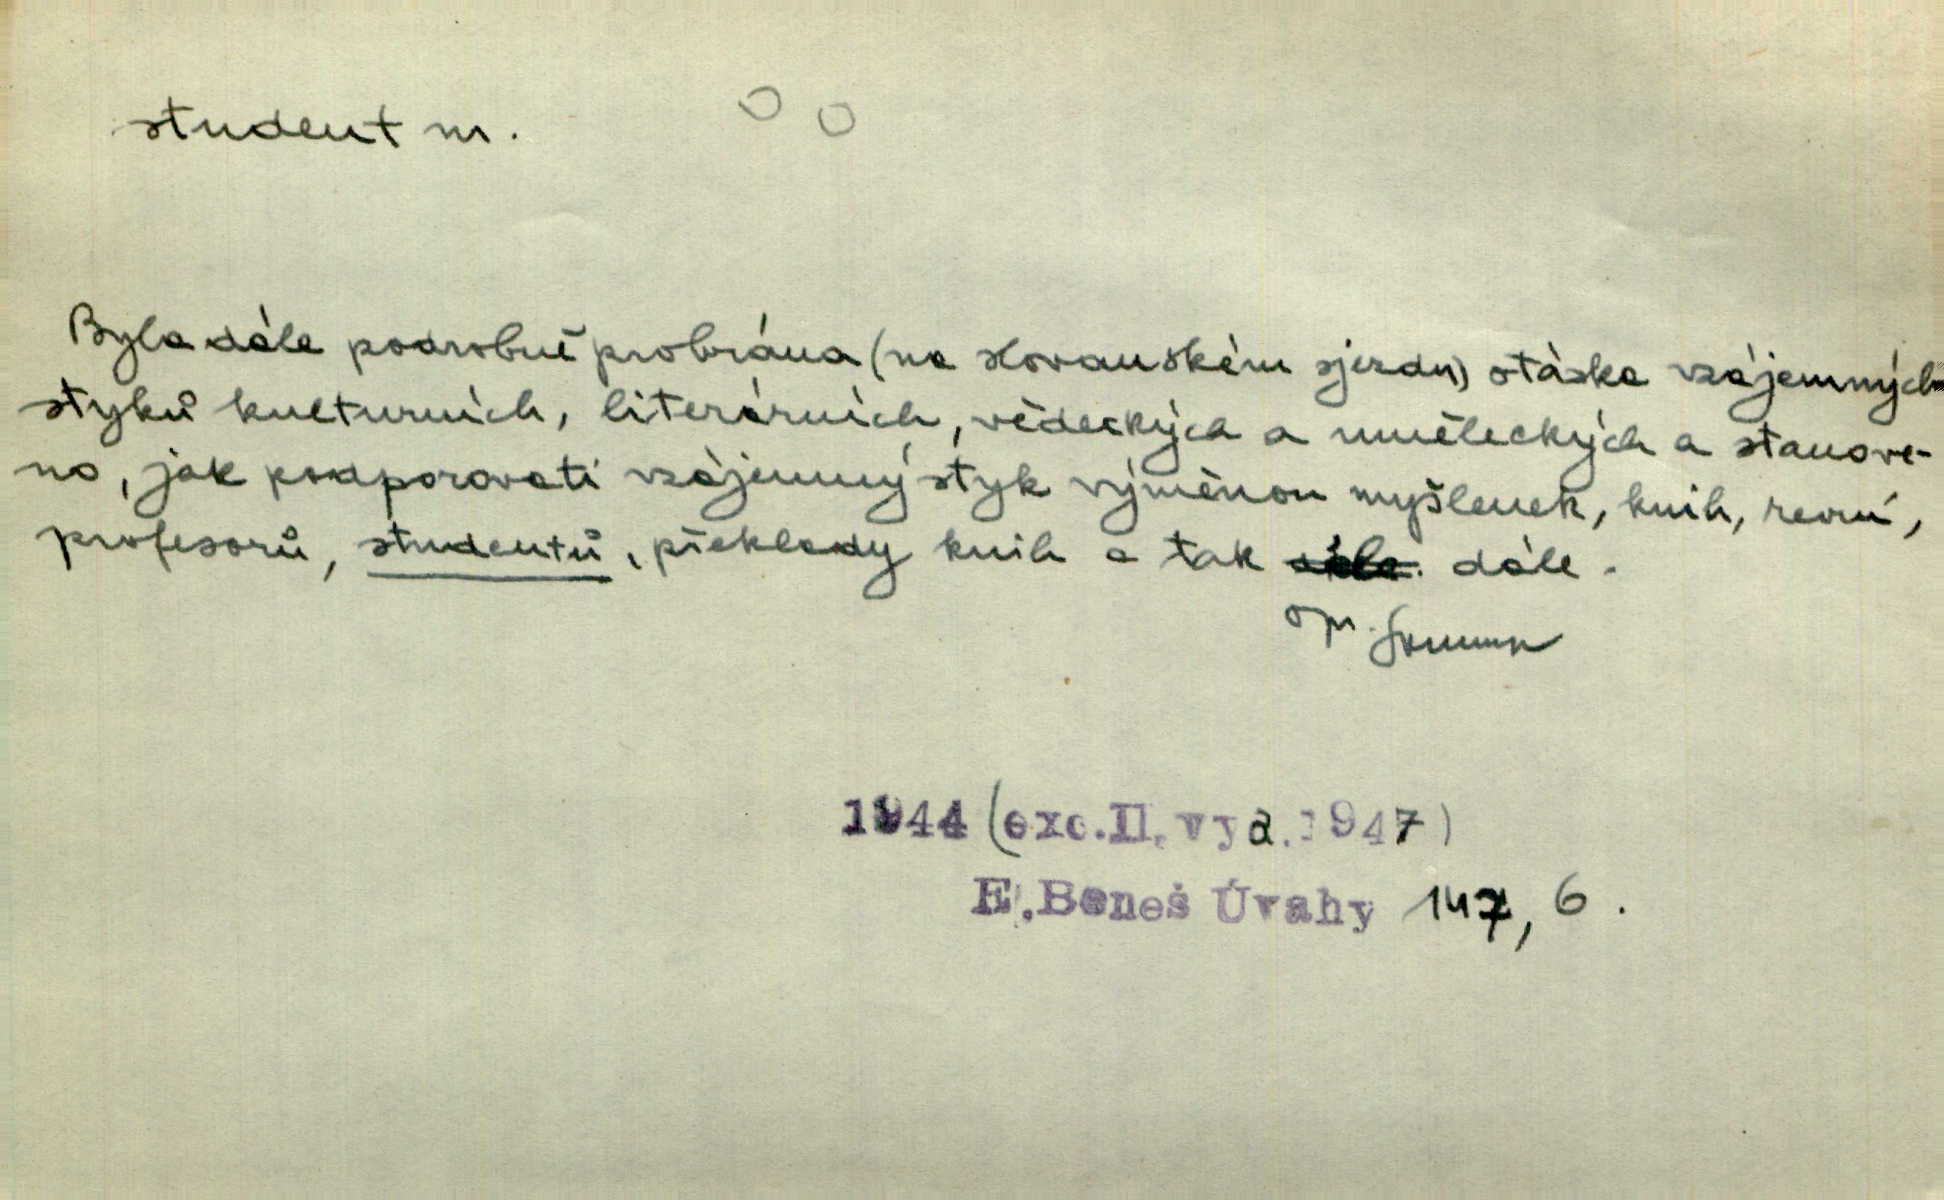 student m.
Byla dále podrobně probrána (na slovanském sjezdu) otázka vzájemných
styků kulturních, literárních, vědeckých a uměleckých a stanove-
no, jak podporovati vzájemný styk výměnou myšlenek, knih, revuí,
profesorů, studentů, překlady knih a tak dále.
1944 (exc. II. vyd. 1947)
E. Beneš Úvahy 147, 6.